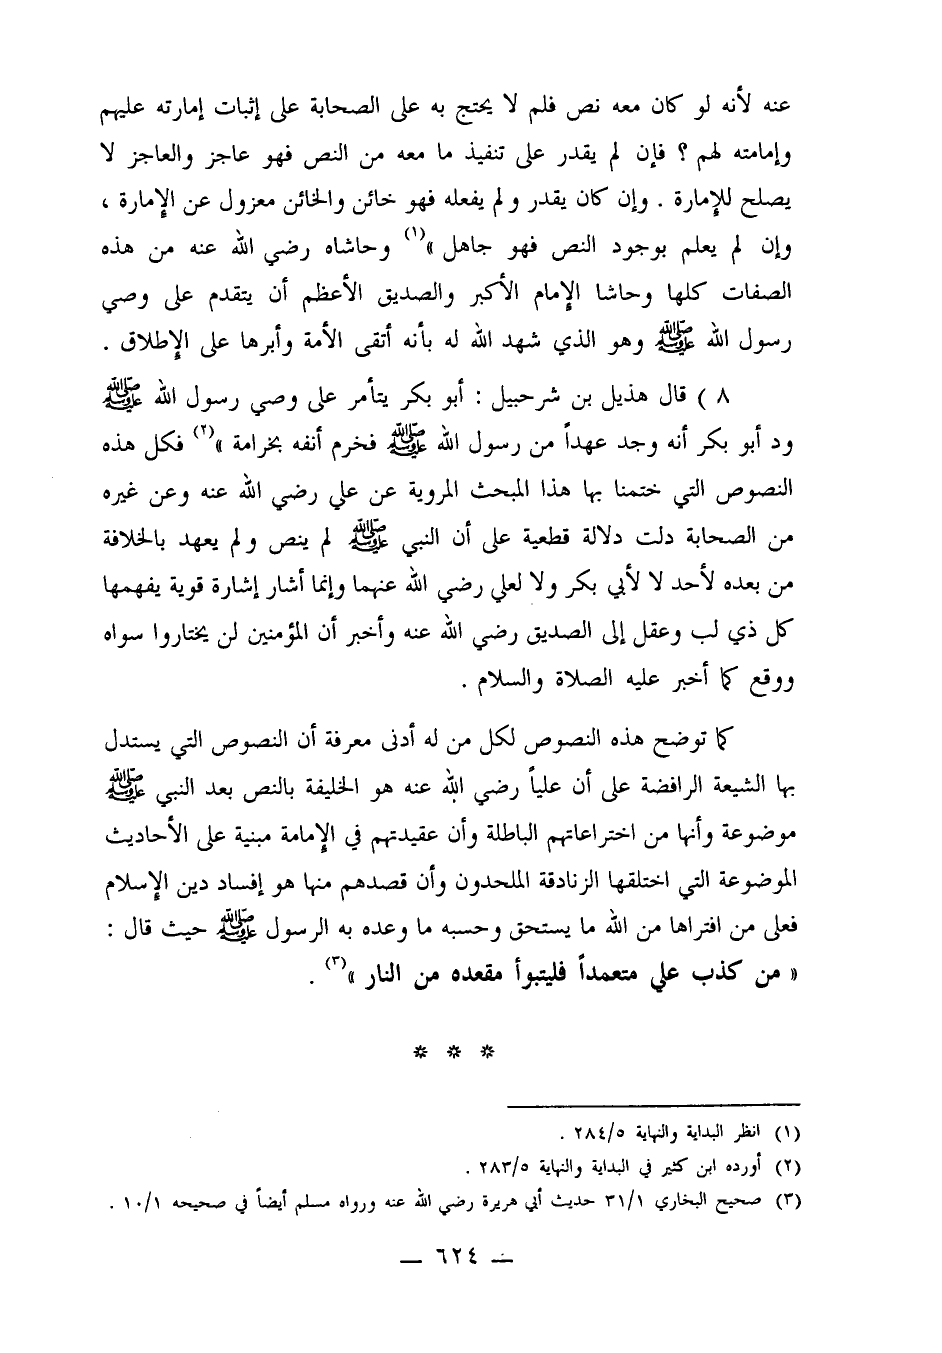 عنه لأنه لو كان معه نص فلم لا يحتج به على الصحابة على إثبات إمارته عليهم
وإمامته لهم ؟ فإن لم يقدر على تنفيذ ما معه من النص فهو عاجز والعاجز لا
يصلح للإمارة . وإن كان يقدر ولم يفعله فهو خائن والخائن معزول عن الإمارة ،
وإن لم يعلم بوجود النص فهو جاهل »(١) وحاشاه رضي الله عنه من هذه
الصفات كلها وحاشا الإمام الأكبر والصديق الأعظم أن يتقدم على وصي
رسول الله ﷺ وهو الذي شهد الله له بأنه أتقى الأمة وأبرها على الإطلاق .
٨ ) قال هذيل بن شرحبيل : أبو بكر يتأمر على وصي رسول الله ﷺ
ود أبو بكر أنه وجد عهداً من رسول الله ﷺ فخرم أنفه بخرامة »(٢) فكل هذه
النصوص التي ختمنا بها هذا المبحث المروية عن علي رضي الله عنه وعن غيره
من الصحابة دلت دلالة قطعية على أن النبي ﷺ لم ينص ولم يعهد بالخلافة
من بعده لأحد لا لأبي بكر ولا لعلي رضي الله عنهما وإنما أشار إشارة قوية يفهمها
كل ذي لب وعقل إلى الصديق رضي الله عنه وأخبر أن المؤمنين لن يختاروا سواه
ووقع كما أخبر عليه الصلاة والسلام .
كما توضح هذه النصوص لكل من له أدنى معرفة أن النصوص التي يستدل
بها الشيعة الرافضة على أن علياً رضي الله عنه هو الخليفة بالنص بعد النبي ﷺ
موضوعة وأنها من اختراعاتهم الباطلة وأن عقيدتهم في الإمامة مبنية على الأحاديث
الموضوعة التي اختلقها الزنادقة الملحدون وأن قصدهم منها هو إفساد دين الإسلام
فعلى من افتراها من الله ما يستحق وحسبه ما وعده به الرسول ﷺ حيث قال :
« من كذب علي متعمداً فليتبوأ مقعده من النار »(٣) .
* * *
(١) انظر البداية والنهاية ٢٨٤/٥ .
(٢) أورده ابن كثير في البداية والنهاية ٢٨٣/٥ .
(٣) صحيح البخاري ٣١/١ حديث أبي هريرة رضي الله عنه ورواه مسلم أيضاً في صحيحه ١٠/١ .
— ٦٢٤ —